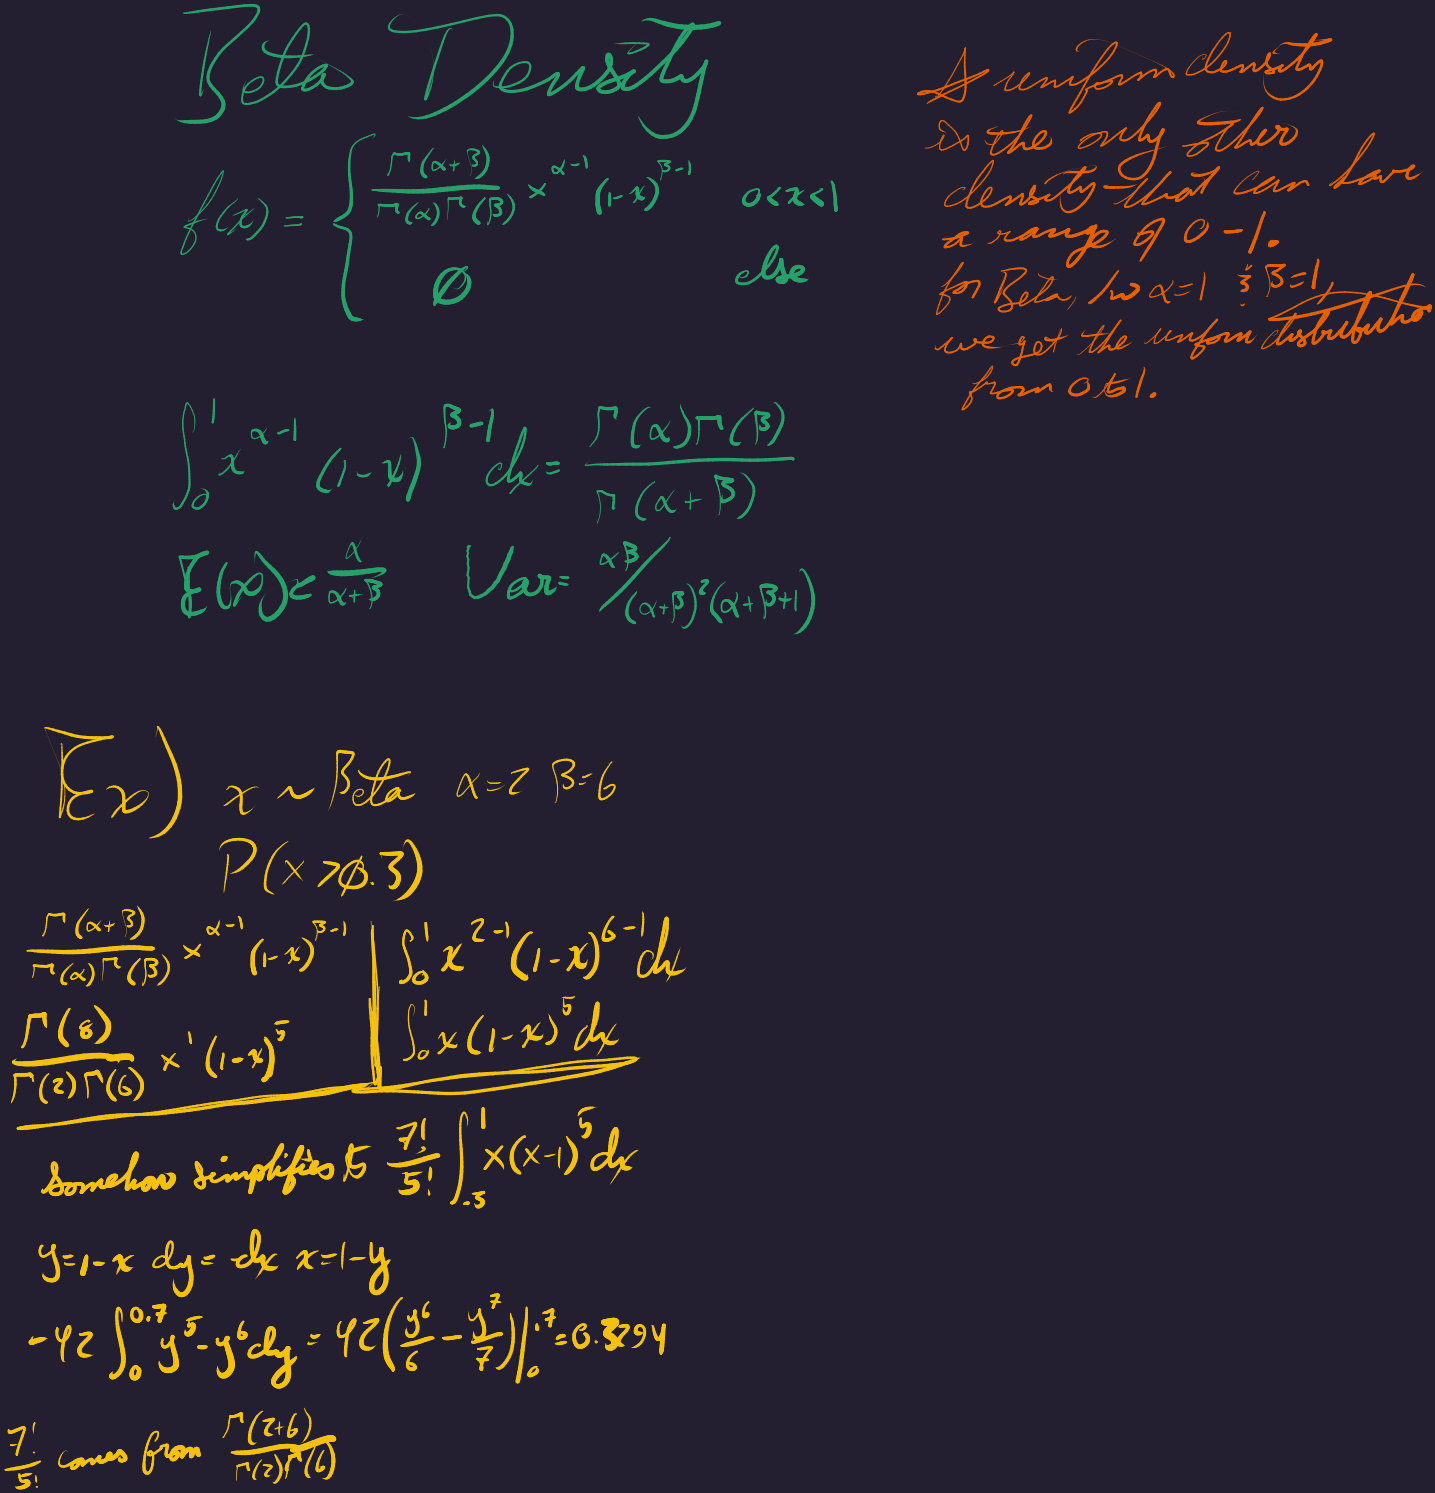 Beta Density
f(x) = { Γ(α+β) / Γ(α)Γ(β) x^(α-1) (1-x)^(β-1)   0<x<1
∅   else
∫₀¹ x^(α-1) (1-x)^(β-1) dx = Γ(α)Γ(β) / Γ(α+β)
E(x) = α / (α+β)   Var = αβ / (α+β)²(α+β+1)
A uniform density
is the only other
density that can have
a range of 0-1.
for Beta, α=1 & β=1,
we get the unform distribution
from 0 to 1.
Ex) x ~ Beta α=2 β=6
P(x >0.3)
Γ(α+β) / Γ(α)Γ(β) x^(α-1) (1-x)^(β-1)
Γ(8) / Γ(2)Γ(6) x¹ (1-x)⁵
∫₀¹ x^(2-1) (1-x)^(6-1) dx
∫₀¹ x(1-x)⁵ dx
Somehow simplifies to 7!/5! ∫_.3^1 x(x-1)⁵ dx
y=1-x dy=-dx x=1-y
-42 ∫₀^0.7 y⁵-y⁶ dy = 42(y⁶/6 - y⁷/7)|₀^.7 = 0.3294
7!/5! comes from Γ(2+6) / Γ(2)Γ(6)